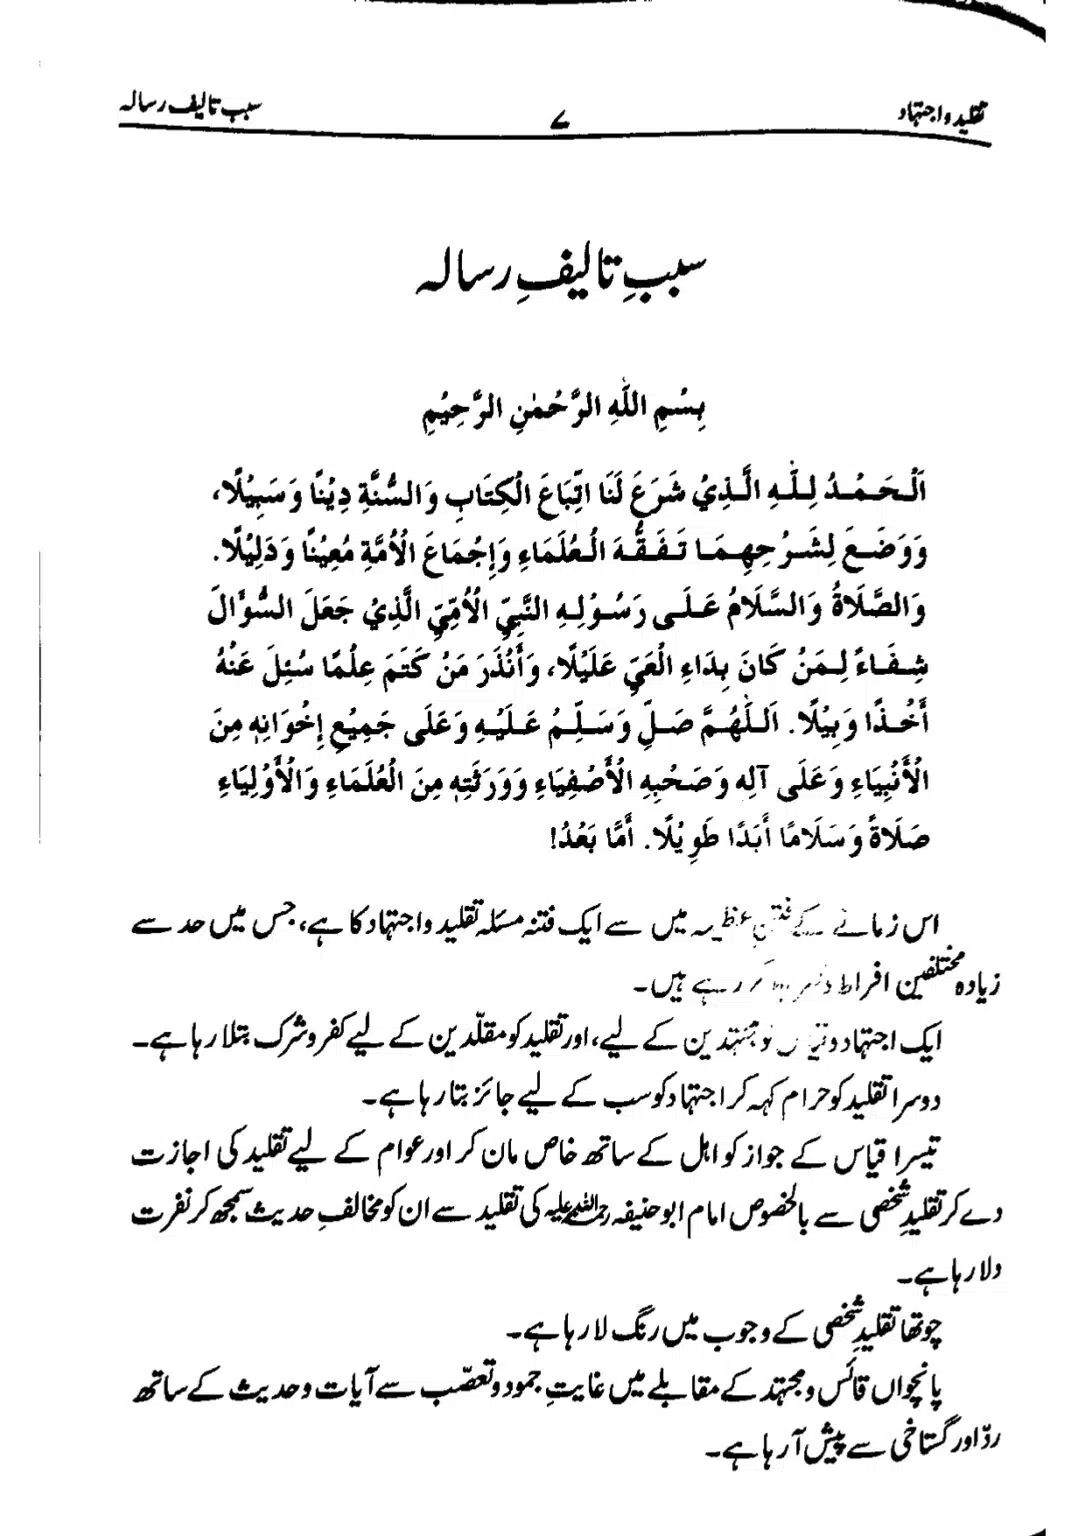 تقلید و اجتہاد
۷
سببِ تالیف رسالہ
سببِ تالیفِ رسالہ
بِسْمِ اللّٰهِ الرَّحْمٰنِ الرَّحِيْمِ
اَلْحَمْدُ لِلّٰهِ الَّذِيْ شَرَعَ لَنَا اتِّبَاعَ الْكِتَابِ وَالسُّنَّةِ دِيْنًا وَسَبِيْلًا،
وَوَضَعَ لِشَرْحِهِمَا تَفَقُّهَ الْعُلَمَاءِ وَإِجْمَاعَ الْأُمَّةِ مُعِيْنًا وَدَلِيْلًا.
وَالصَّلَاةُ وَالسَّلَامُ عَلَى رَسُوْلِهِ النَّبِيِّ الْأُمِّيِّ الَّذِيْ جَعَلَ السُّؤَالَ
شِفَاءً لِمَنْ كَانَ بِدَاءِ الْعَيِّ عَلِيْلًا، وَأَنْذَرَ مَنْ كَتَمَ عِلْمًا سُئِلَ عَنْهُ
أَخْذًا وَبِيْلًا. اَللّٰهُمَّ صَلِّ وَسَلِّمْ عَلَيْهِ وَعَلَى جَمِيْعِ إِخْوَانِهٖ مِنَ
الْأَنْبِيَاءِ وَعَلَى آلِهٖ وَصَحْبِهِ الْأَصْفِيَاءِ وَوَرَثَتِهٖ مِنَ الْعُلَمَاءِ وَالْأَوْلِيَاءِ
صَلَاةً وَسَلَامًا أَبَدًا طَوِيْلًا. أَمَّا بَعْدُ!
اس زمانے کے فتنِ عظیمہ میں سے ایک فتنہ مسئلہ تقلید و اجتہاد کا ہے، جس میں حد سے
زیادہ مختلفین افراط و تفریط کر رہے ہیں۔
ایک اجتہاد و قیاس کو مجتہدین کے لیے، اور تقلید کو مقلّدین کے لیے کفر و شرک بتلا رہا ہے۔
دوسرا تقلید کو حرام کہہ کر اجتہاد کو سب کے لیے جائز بتا رہا ہے۔
تیسرا قیاس کے جواز کو اہل کے ساتھ خاص مان کر اور عوام کے لیے تقلید کی اجازت
دے کر تقلیدِ شخصی سے بالخصوص امام ابوحنیفہ رحمۃ اللہ علیہ کی تقلید سے ان کو مخالفِ حدیث سمجھ کر نفرت
دلا رہا ہے۔
چوتھا تقلیدِ شخصی کے وجوب میں رنگ لا رہا ہے۔
پانچواں قائس و مجتہد کے مقابلے میں غایتِ جمود و تعصّب سے آیات و حدیث کے ساتھ
ردّ اور گستاخی سے پیش آ رہا ہے۔